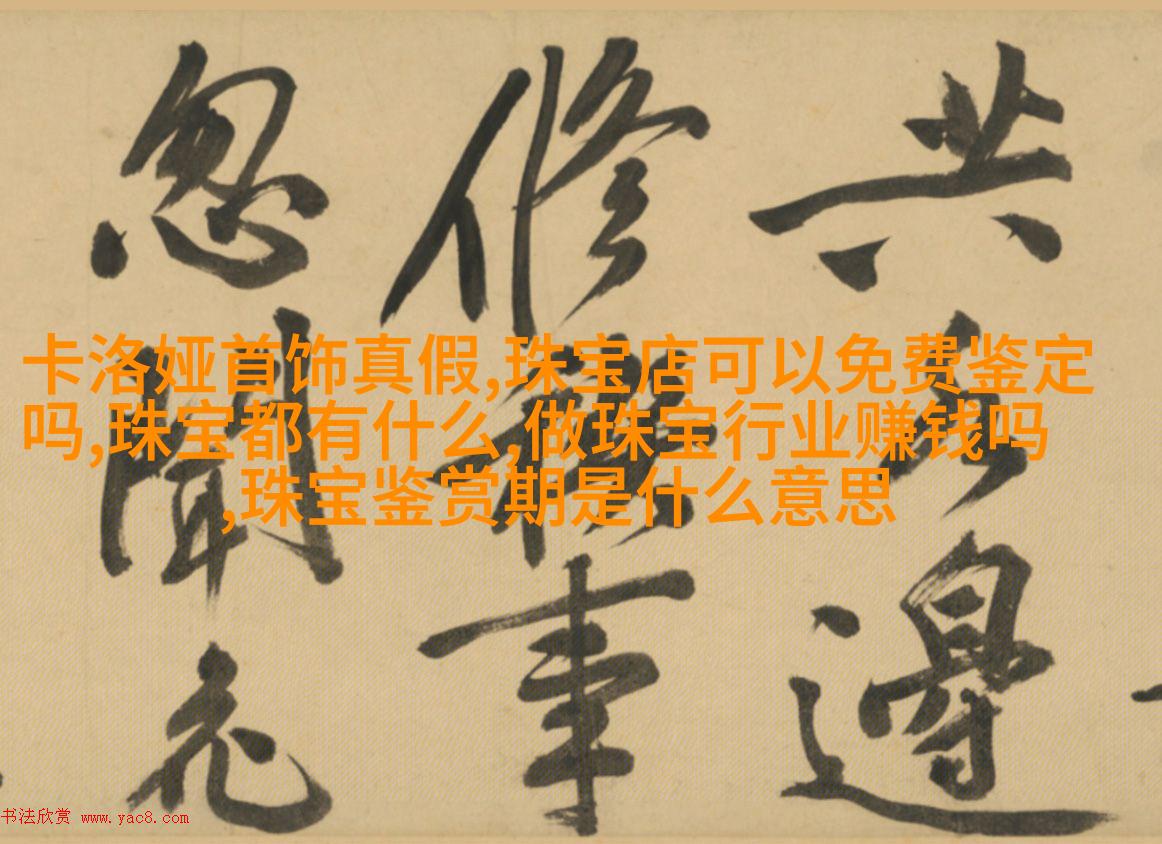 卡洛娅首饰真假,珠宝店可以免费鉴定
吗,珠宝都有什么,做珠宝行业赚钱吗
,珠宝鉴赏期是什么意思
共遵
修禊事
忽聞
书法欣赏 www.yac8.com